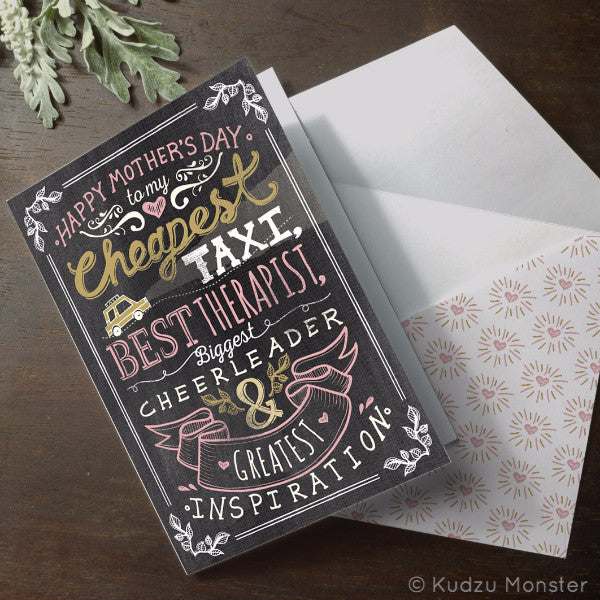 HAPPY MOTHER'S DAY
to my
Cheapest
TAXI,
BEST THERAPIST,
Biggest
CHEERLEADER
&
GREATEST
INSPIRATION.
© Kudzu Monster